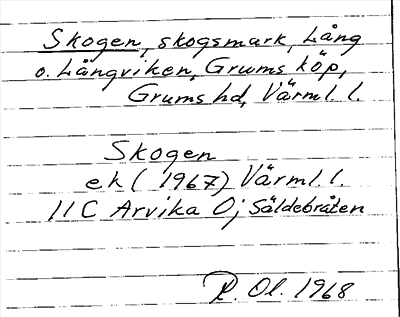 Skogen, skogsmark, Lång
o. Långviken, Grums köp,
Grums hd, Värml. l.
Skogen
ek ( 1967) Värml. l.
11C Arvika Oj Säldebråten
R. Ol. 1968